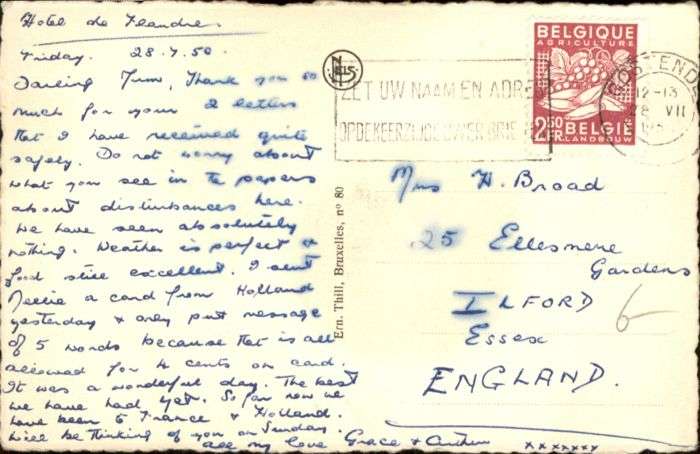 Hotel de Flandres
Friday. 28.7.50.
Darling Mum, Thank you so
much for your 2 letters
that I have received quite
safely. Do not worry about
what you see in the papers
about disturbances here.
We have seen absolutely
nothing. Weather is perfect &
food still excellent. I sent
Nellie a card from Holland
yesterday & only put message
of 5 words because that is all
allowed for 4 cents on card.
It was a wonderful day. The best
we have had yet. So far now we
have been to France & Holland.
Will be thinking of you on Sunday.
all my love Grace & Arthur
xxxxxxx
Ern. Thill, Bruxelles, nº 80
ZET UW NAAM EN ADRE
OP DE KEERZIJDE UWER BRIE
BELGIQUE
AGRICULTURE
2.50 FR.
BELGIË
LANDBOUW
OOSTEND
12-13
28 VII
Mrs H. Broad
25 Ellesmere
Gardens
ILFORD
Essex
ENGLAND.
6